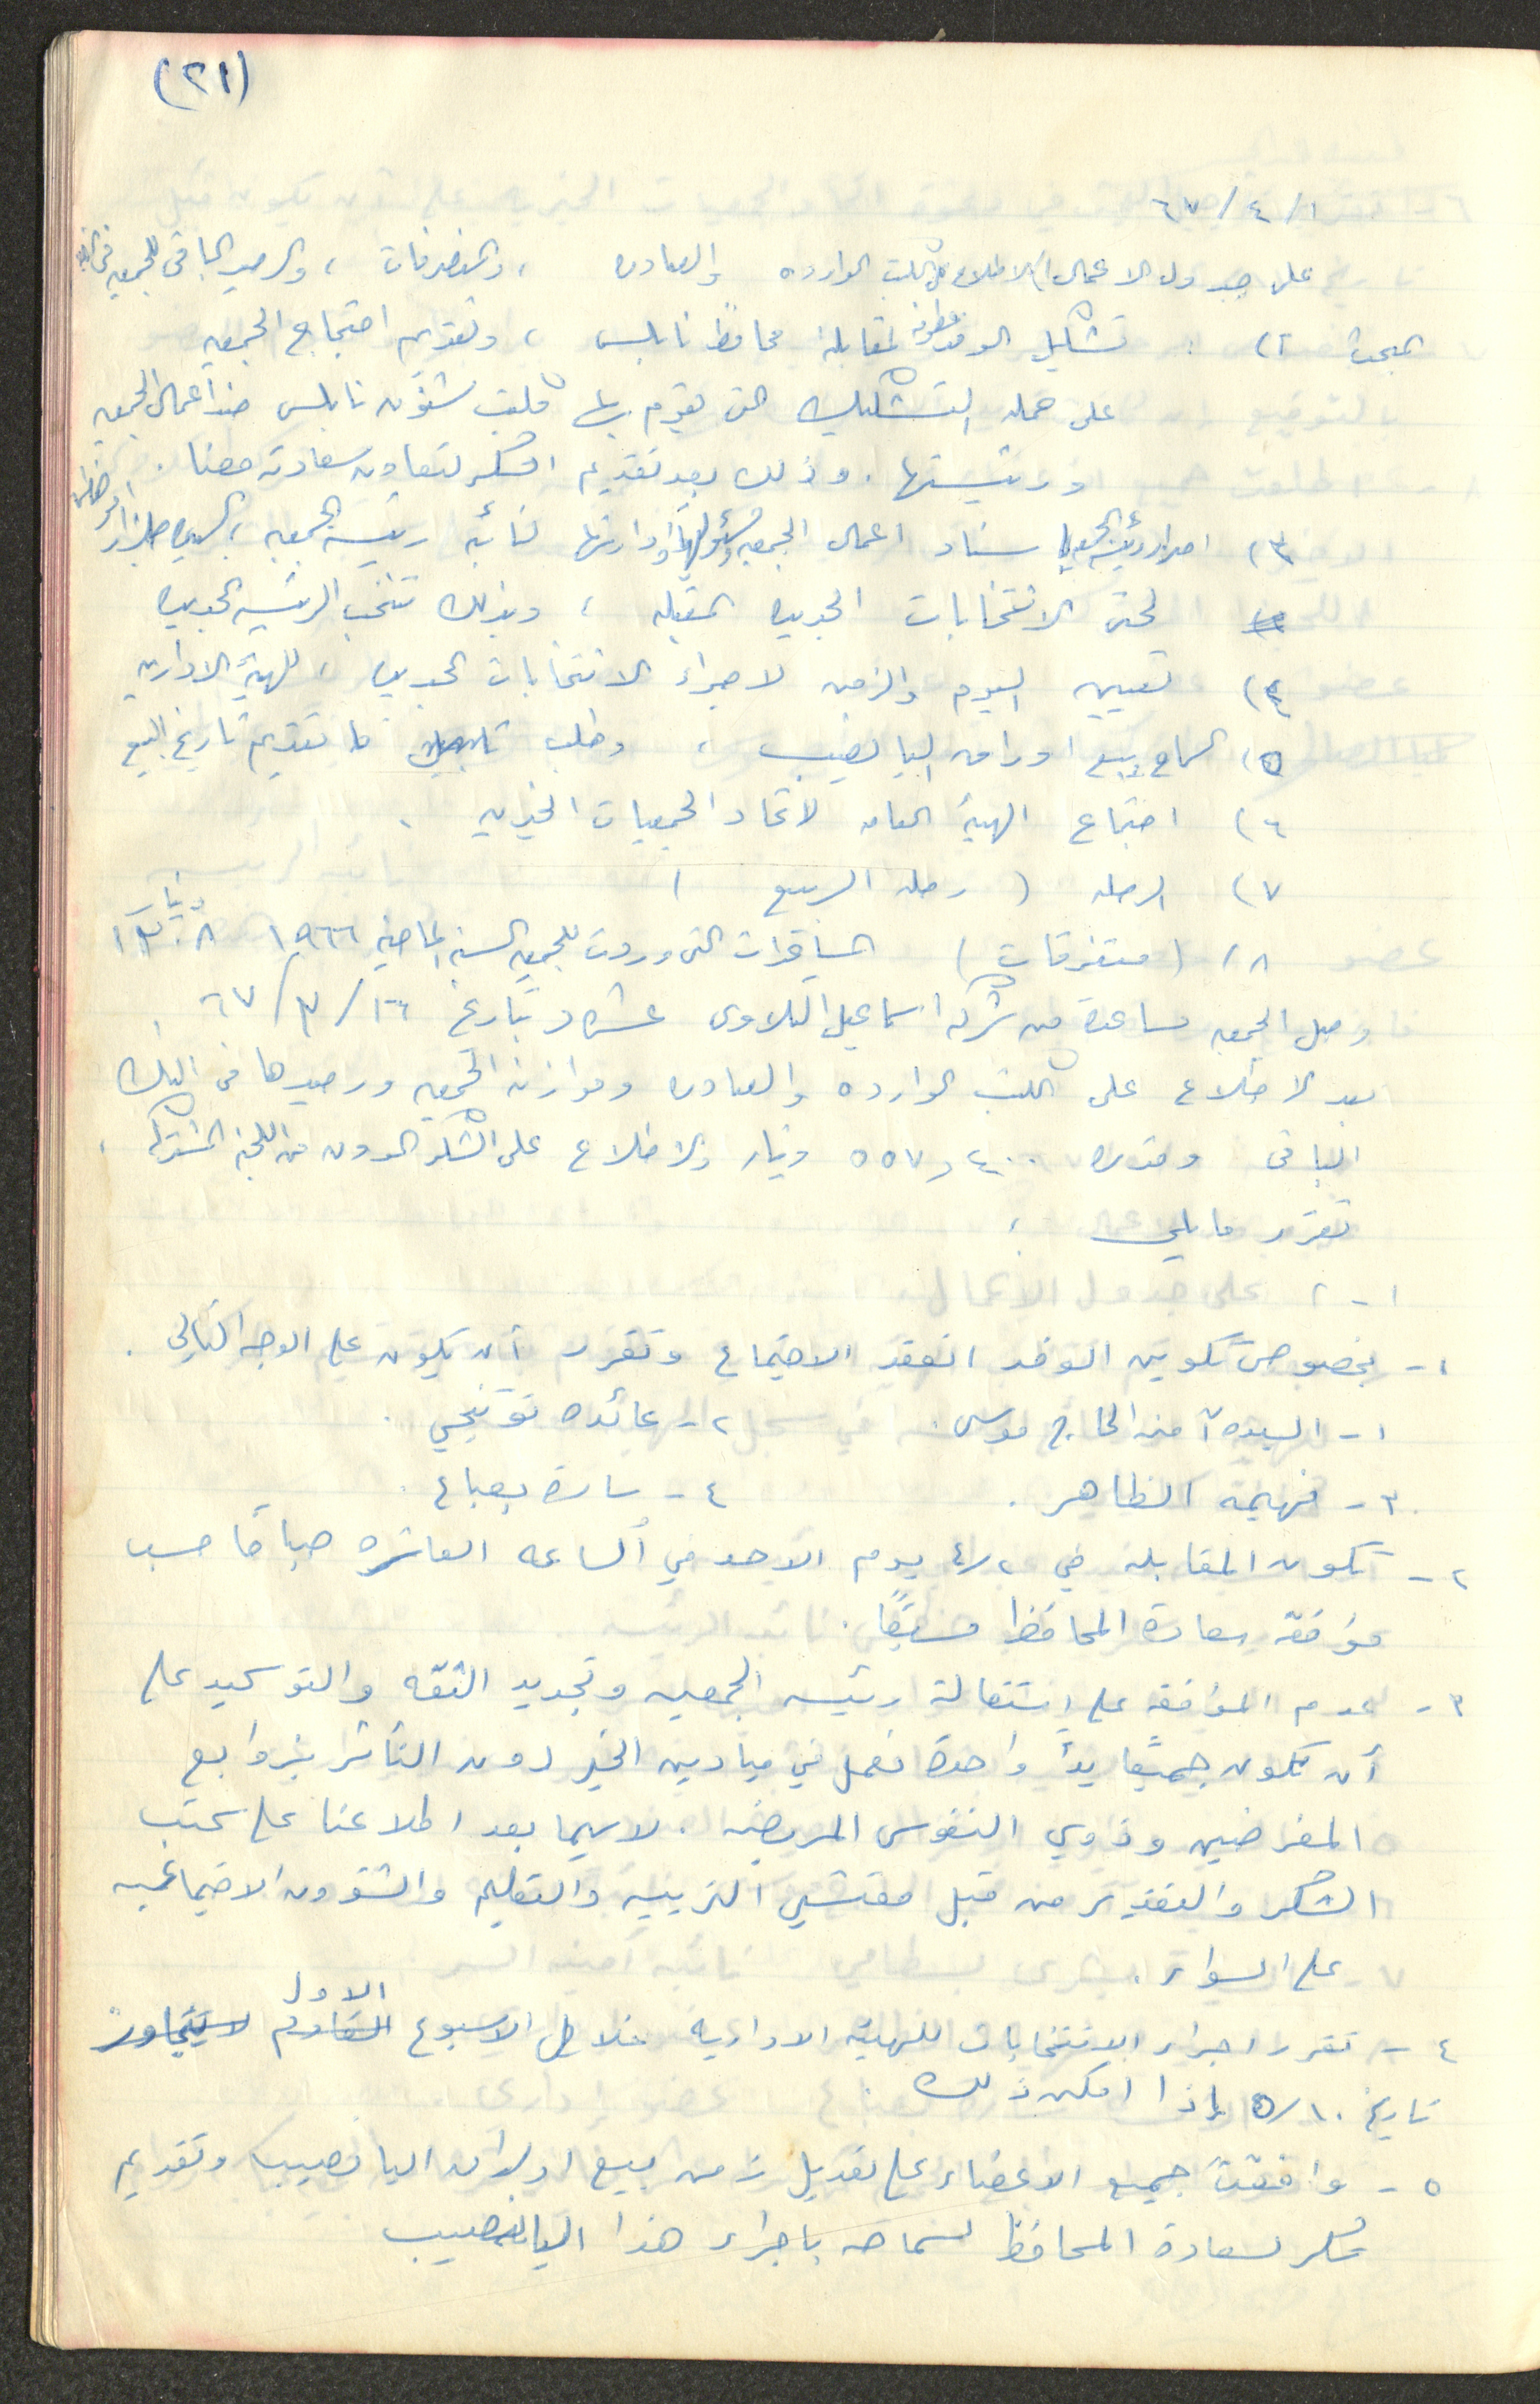 (٢١)
٦٧/٤/١
على جدول الاعمال ١) الاطلاع على الكتب الوارده والصادره ، والمصروفات ، والرصيد الباقي للجمعيه في البنك
المبحث ٢) : تشكيل الوفد لمقابلة محافظ نابلس ، وتقديم احتجاج الجمعيه
على حمله التشكيك التي يقوم بها مكتب شؤون نابلس ضد اعمال الجمعيه
ورئيستها . وذلك بعد تقديم الشكر لتعاون سعادته معنا .
٣) اصرار رئيسة الجمعيه اسناد اعمال الجمعيه ومسؤوليتها وادارتها لنائبه رئيسة الجمعيه ،
لحتى الانتخابات الجديده المقبله ، وبذلك تنتخب الرئيسه الجديده
٤) تعيين اليوم والزمن لاجراء الانتخابات الجديده ، للهيئة الاداريه
٥) السماح ببيع اوراق اليانصيب ، وطلب تقديم تاريخ البيع
٦) اجتماع الهيئة العامه لاتحاد الجمعيات الخيريه .
٧) الرحله ( رحله الربيع )
٨) (متفرقات) المساعدات التي وردت للجمعيه السنه الماضيه ١٩٦٦ ١٣٠٨ دينار
وصل الجمعيه مساعدة من شركه اسماعيل التلاوى عشره د بتاريخ ٦٧/٣/١٦ .
بعد الاطلاع على الكتب الوارده والصادره وموازنة الجمعيه ورصيدها في البنك
الباقي وقدره ٥٥٧٫٤٠٠ دينار والاطلاع على الشكر المدون من اللجنه المشتركه .
تقرر ما يلي :
١ - بخصوص تكوين الوفد انعقد الاجتماع وتقرر أن يكون على الوجه التالي .
١ - السيده آمنه الحاج موسى . ٢ - عائده توتنجي .
٣ - فهيمه الظاهر . ٤ - ساره بعباع .
٢ - تكون المقابلة في ٤/٢ يوم الاحد في الساعه العاشره صباحًا حسب
موافقة سعادة المحافظ مسبقًا .
٣ - عدم الموافقه على إستقالة رئيسه الجمعيه وتجديد الثقه والتوكيد على
أن نكون جميعًا يدًا واحدة نعمل في ميادين الخير دون التأثر بزوابع
المغرضين وذوي النفوس المريضه . لاسيما بعد اطلاعنا على كتب
الشكر والتقدير من قبل مفتشي التربيه والتعليم والشؤون الاجتماعيه
على السواء .
٤ - تقرر اجراء الانتخابات للهيئه الاداريه خلال الاسبوع القادم الاول لا يتجاوز
تاريخ ٥/١٠ إذا امكن ذلك .
٥ - وافقت جميع الاعضاء على تعديل زمن بيع اوراق اليانصيب وتقديم
شكر لسعادة المحافظ لسماحه باجراء هذا اليانصيب